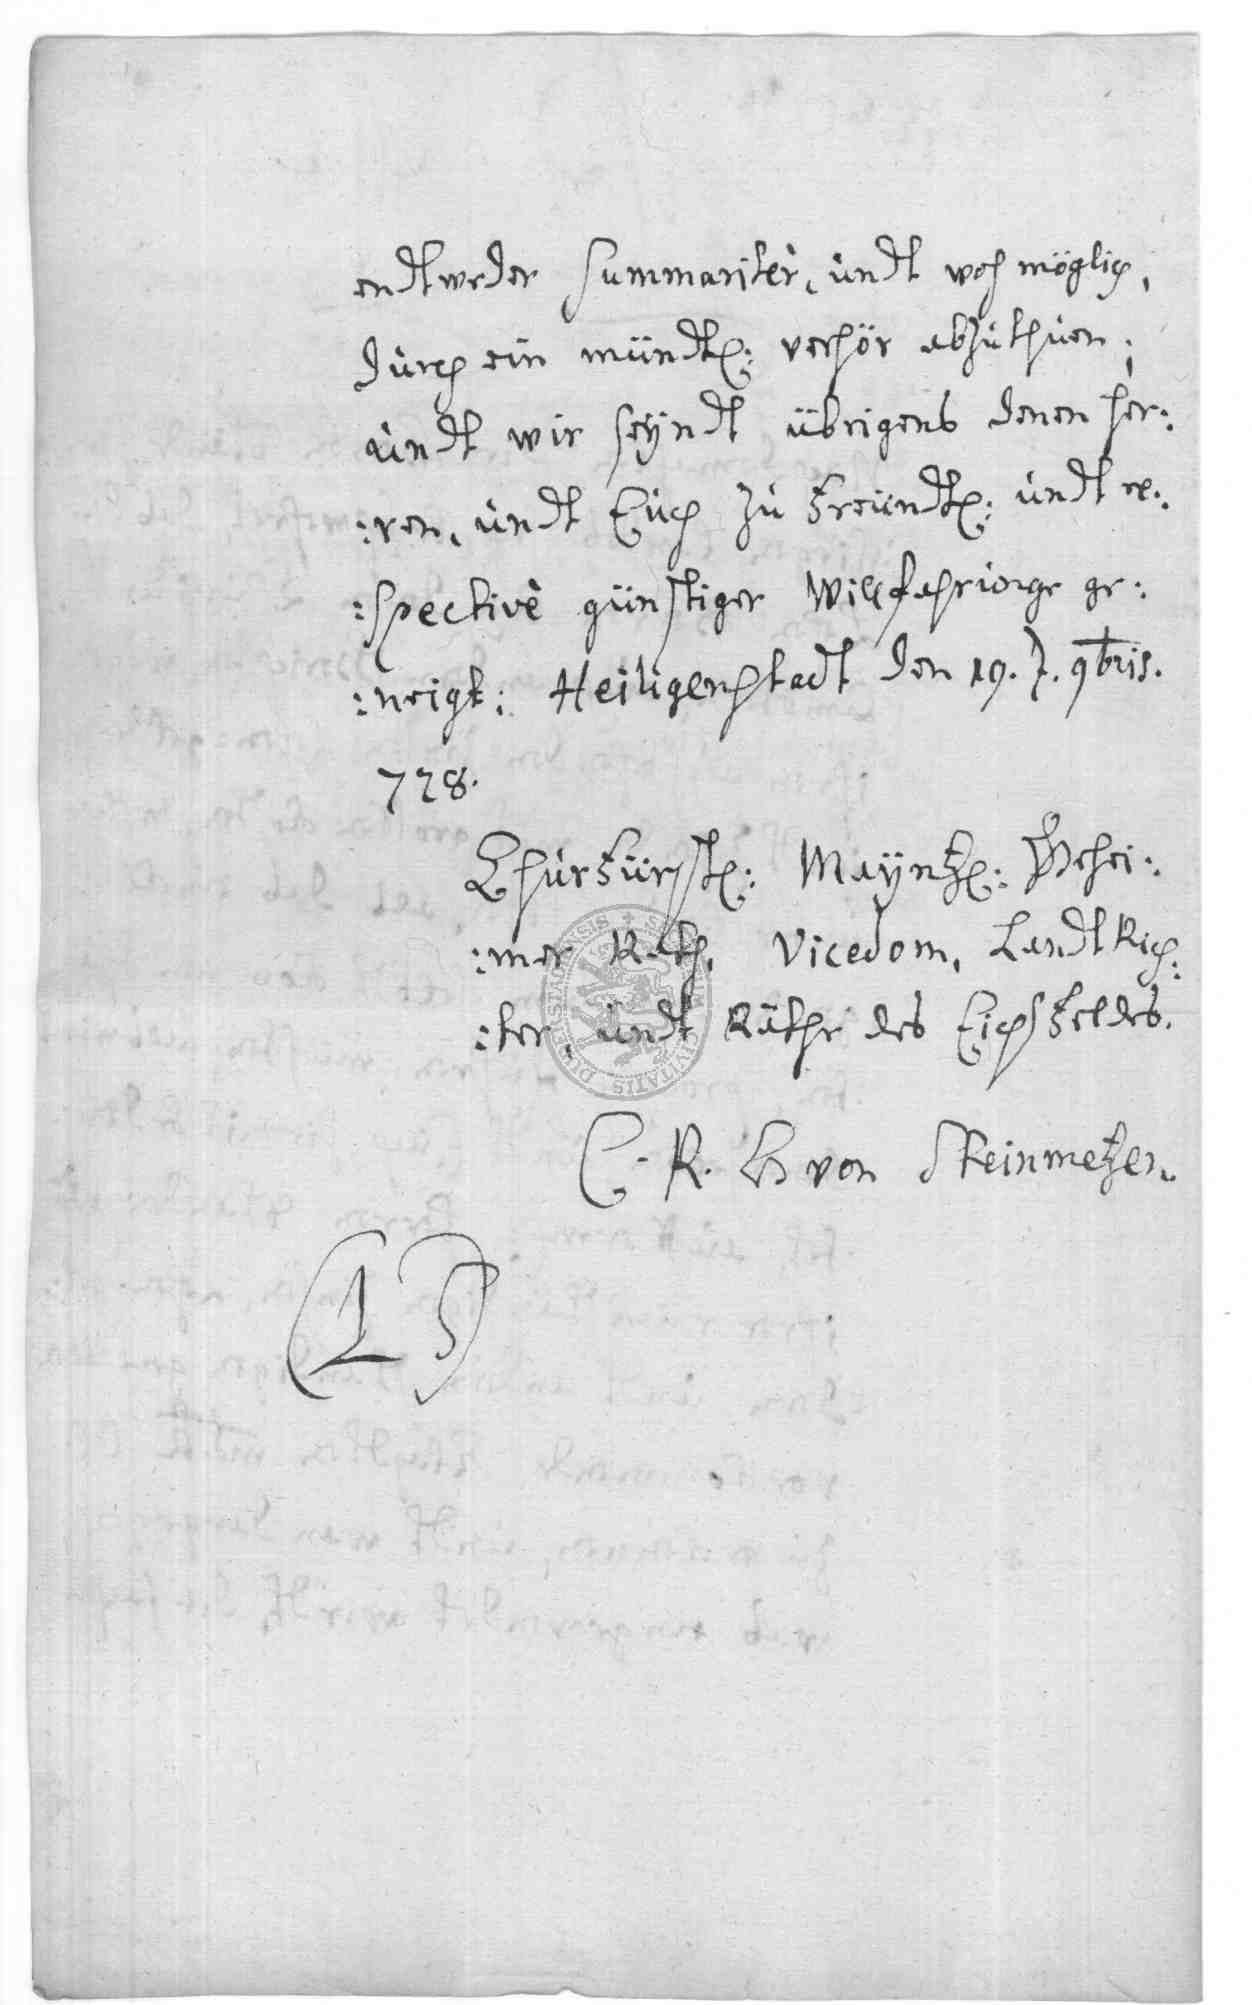 endtweder summaritèr, undt woh möglich,
durch ein mündtl: verhör abzuthuen,
undt wir seyndt übrigens denen her:
:ren, undt Euch zu freündtl: undt re:
:spectivè günstiger Willfahrunge ge:
:neigt: Heiligenstadt den 19. 9bris.
728.
Churfürstl: Mayntzl: Gehei:
:mer Rath, Vicedom, LandtRich:
:ter, undt Räthe des Eichsfeldes.
C. R. von Steinmetzen.
(L S)